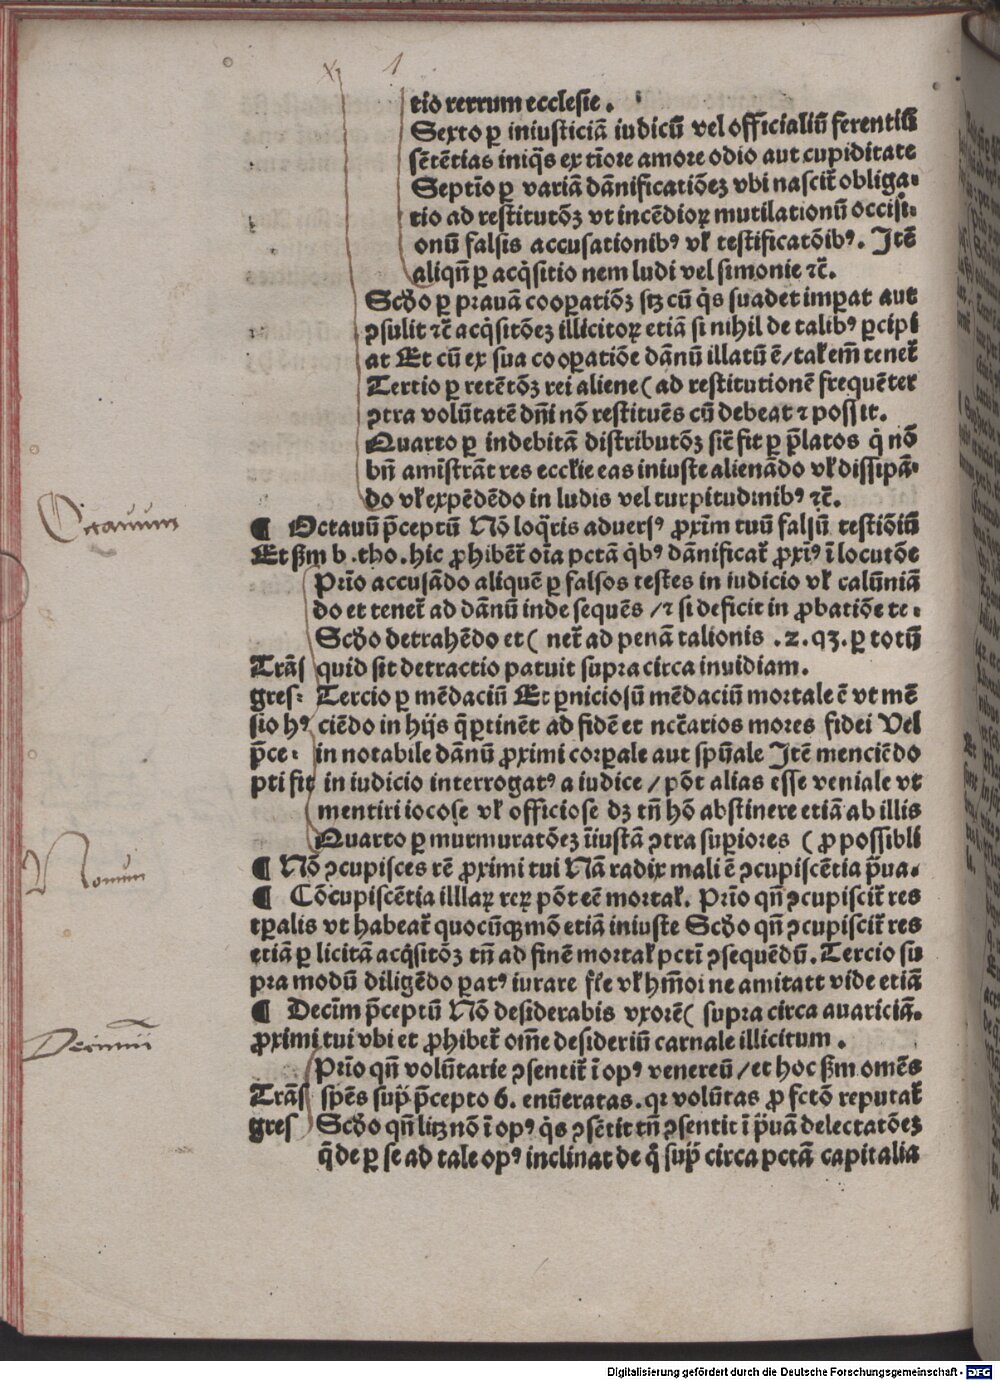 tio rerrum ecclesie .
Sexto ꝑ iniusticiā iudicū vel officialiū ferentiū
sētētias iniq̄s ex tīore amore odio aut cupiditate
Septīo ꝑ variā dānificatiōeꝫ vbi nascit̄ obliga-
tio ad restitutōꝫ vt incēdioꝝ mutilationū occisi-
onū falsis accusationibꝰ vł testificatōibꝰ. Itē
aliqn̄ ꝑ acq̇sitio nem ludi vel simonie ⁊c̄.
Scďo ꝑ prauā cooꝑatiōꝫ sꝫ cū q̇s suadet imꝑat aut
ꝯsulit ⁊c̄ acq̇sitōeꝫ illicitoꝝ etiā si nihil de talibꝰ ꝑcipi
at Et cū ex sua cooꝑatiōe dānū illatū ē/ tałem̄ tenet̄
Tertio ꝑ retētōꝫ rei aliene ( ad restitutionē frequēter
ꝯtra volūtatē dn̄i nō restituēs cū debeat ⁊ possit.
Quarto ꝑ indebitā distributōꝫ sic̄ fit ꝑ p̄latos q̇ nō
bn̄ amīstrāt res eccłie eas iniuste alienādo vł dissipā-
do vł expēdēdo in ludis vel turpitudinibꝰ ⁊c̄.
Octauum
¶ Octauū p̄ceptū Nō loq̄ris aduersꝰ ꝓxīm tuū falsū testiōiū
Et ẜm b .tho. hic ꝓhibēt̄ oīa pctā q̇bꝰ dānificat̄ ꝓxīꝰ ī locutōe
Prīo accusādo aliquē ꝑ falsos testes in iudicio vł calūniā
do et tenet̄ ad dānū inde sequēs /⁊ si deficit in ꝓbatiōe te-
Scďo detrahēdo et ( net̄ ad penā talionis .2. qꝫ. ꝑ totū
Trās quid sit detractio patuit supra circa inuidiam.
gres- Tercio ꝑ mēdaciū Et ꝑniciosū mēdaciū mortale ē vt mē
sio hꝰ ciēdo in hijs q̄ ꝑtinēt ad fidē et nc̄carios mores fidei Vel
p̄ce- in notabile dānū ꝓximi corꝑale aut spūale Itē menciēdo
pti fit in iudicio interrogatꝰ a iudice / pōt alias esse veniale vt
mentiri iocose vł officiose dꝫ tn̄ hō abstinere etiā ab illis
Quarto ꝑ murmuratōeꝫ īiustā ꝯtra suꝑiores ( ꝓ possibli
Nonum
¶ Nō ꝯcupisces rē ꝓximi tui Nā radix mali ē ꝯcupiscētia p̄ua.
¶ Cōcupiscētia illlaꝝ reꝝ pōt eē mortał. Prīo qn̄ ꝯcupiscit̄ res
tꝑalis vt habeat̄ quocūqꝫ mō etiā iniuste Scďo qn̄ ꝯcupiscit̄ res
etiā ꝑ licitā acq̇sitōꝫ tn̄ ad finē mortał pctī ꝯsequēdū. Tercio su
pra modū diligēdo ꝑatꝰ iurare fłe vł hm̄oi ne amitatt vide etiā
Decimum
¶ Decīm p̄ceptū Nō desiderabis vxorē ( supra circa auariciā.
ꝓximi tui vbi et ꝓhibet̄ om̄e desideriū carnale illicitum .
Prīo qn̄ volūtarie ꝯsentit̄ ī opꝰ venereū /et hoc ẜm omēs
Trās spēs sup̄ p̄cepto 6. enūeratas. qꝛ volūtas ꝓ fctō reputat̄
gres Scďo qn̄ licꝫ nō ī opꝰ q̇s ꝯsētit tn̄ ꝯsentit ī p̄uā delectatōeꝫ
q̄ de ꝑ se ad tale opꝰ inclinat de q̇ sup̄ circa pctā capitalia
Digitalisierung gefördert durch die Deutsche Forschungsgemeinschaft - DFG